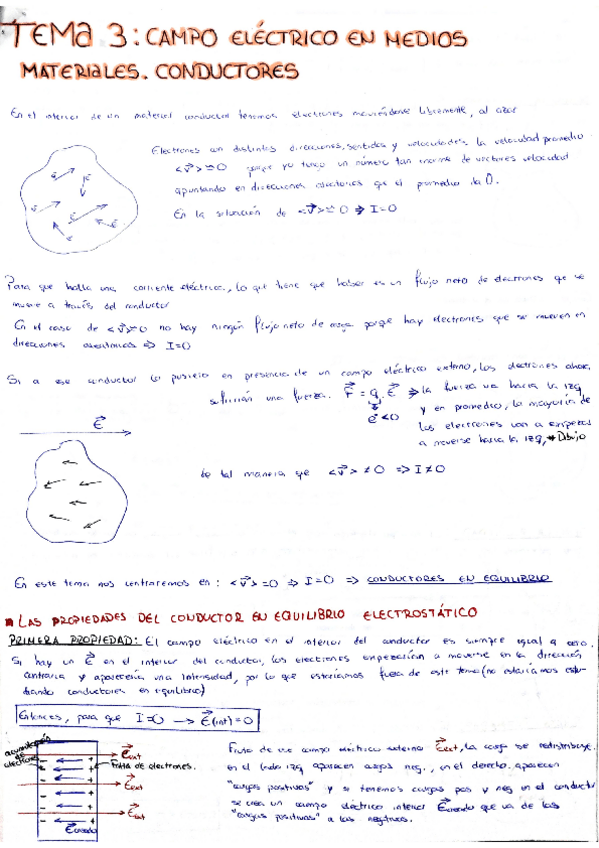 TEMA 3: CAMPO ELÉCTRICO EN MEDIOS
MATERIALES. CONDUCTORES
En el interior de un material conductor tenemos electrones moviéndose libremente, al azar
Electrones con distintas direcciones, sentidos y velocidades. La velocidad promedio
<v⃗> ≈ 0 porque yo tengo un número tan enorme de vectores velocidad
apuntando en direcciones aleatorias que el promedio da 0.
En la situación de <v⃗> ≈ 0 ⇒ I=0
Para que halla una corriente eléctrica, lo que tiene que haber es un flujo neto de electrones que se
mueve a través del conductor
En el caso de <v⃗>=0 no hay ningún flujo neto de carga porque hay electrones que se mueven en
direcciones aleatorias ⇒ I=0
Si a ese conductor lo pusiera en presencia de un campo eléctrico externo, los electrones ahora
sufrirían una fuerza. F⃗ = q. E⃗ ⇒ la fuerza va hacia la izq
e⁻<0
y en promedio, la mayoría de
los electrones van a empezar
a moverse hacia la izq, * Dibujo
E⃗
de tal manera que <v⃗> ≠ 0 ⇒ I≠0
En este tema nos centraremos en: <v⃗>=0 ⇒ I=0 ⇒ CONDUCTORES EN EQUILIBRIO
LAS PROPIEDADES DEL CONDUCTOR EN EQUILIBRIO ELECTROSTÁTICO
PRIMERA PROPIEDAD: El campo eléctrico en el interior del conductor es siempre igual a cero.
Si hay un E⃗ en el interior del conductor, los electrones empezarían a moverse en la dirección
contraria y aparecería una intensidad, por lo que estaríamos fuera de este tema (no estaríamos estu-
diando conductores en equilibrio)
Entonces, para que I=0 → E⃗(int)=0
acumulación
de
electrones
E⃗ext
Falta de electrones.
E⃗ext
E⃗ext
E⃗creado
Fruto de ese campo eléctrico externo E⃗ext, la carga se redistribuye.
en el lado izq aparecen cargas neg., en el derecho aparecen
"cargas positivas" y si tenemos cargas pos y neg en el conductor
se crea un campo eléctrico interior E⃗creado que va de las
"cargas positivas" a las negativas.